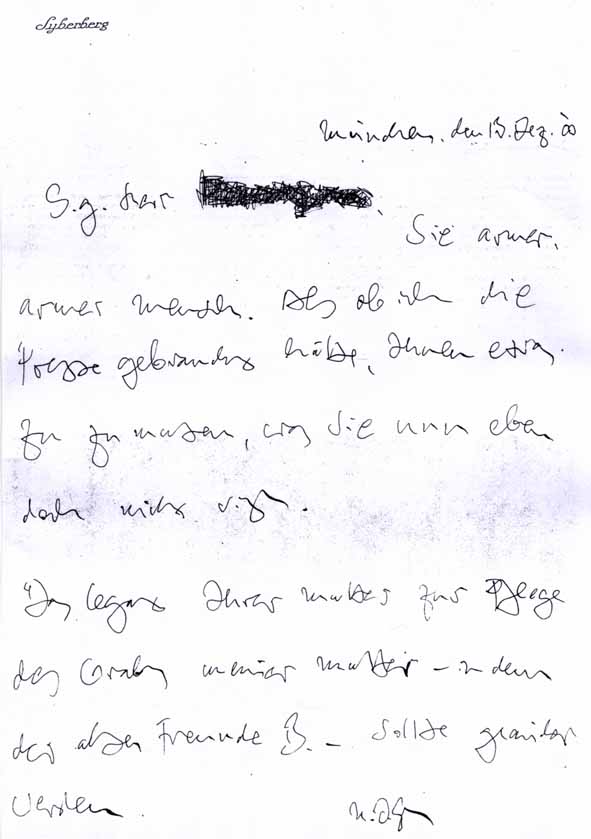 Syberberg
München, den 13. Dez. 00
S.g. Herr
Sie armer,
armer Mensch. Als ob ich die
Presse gebraucht hätte, Ihnen etwas
zu zu muten, was Sie nun eben
doch nicht
"Das Legat Ihrer Mutter zur Pflege
des Grabes meiner Mutter – in dem
der alten Freunde B. – sollte geändert
werden.